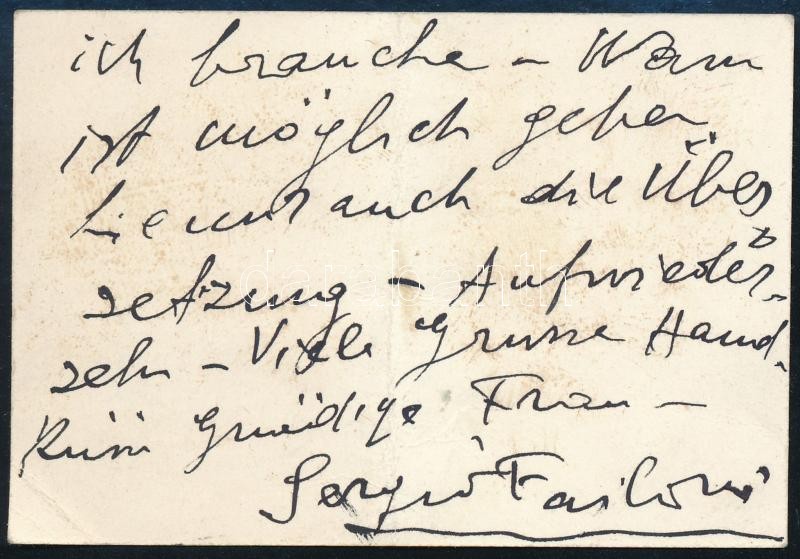 ich brauche – Wenn
ist möglich geben
Sie mir auch die Über
zetzung – Aufwieder-
zehn – Viele Grüsse Hand-
Küss Gnädige Frau –
Sergio Failoni